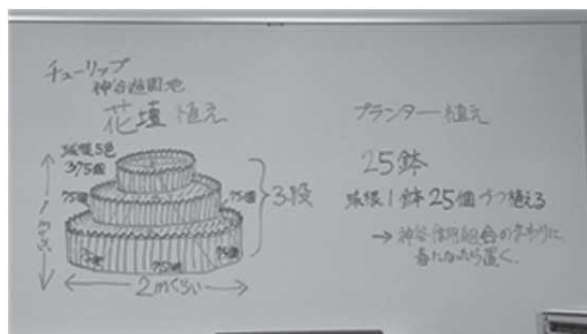 チューリップ
神谷遊園地
花壇植え
球根5色
375個
75個
75個
75個
75個
75個
3段
1mぐらい
2mぐらい
プランター植え
25鉢
球根1鉢25個づつ植える
→神谷信用組合のまわりに
春になったら置く。